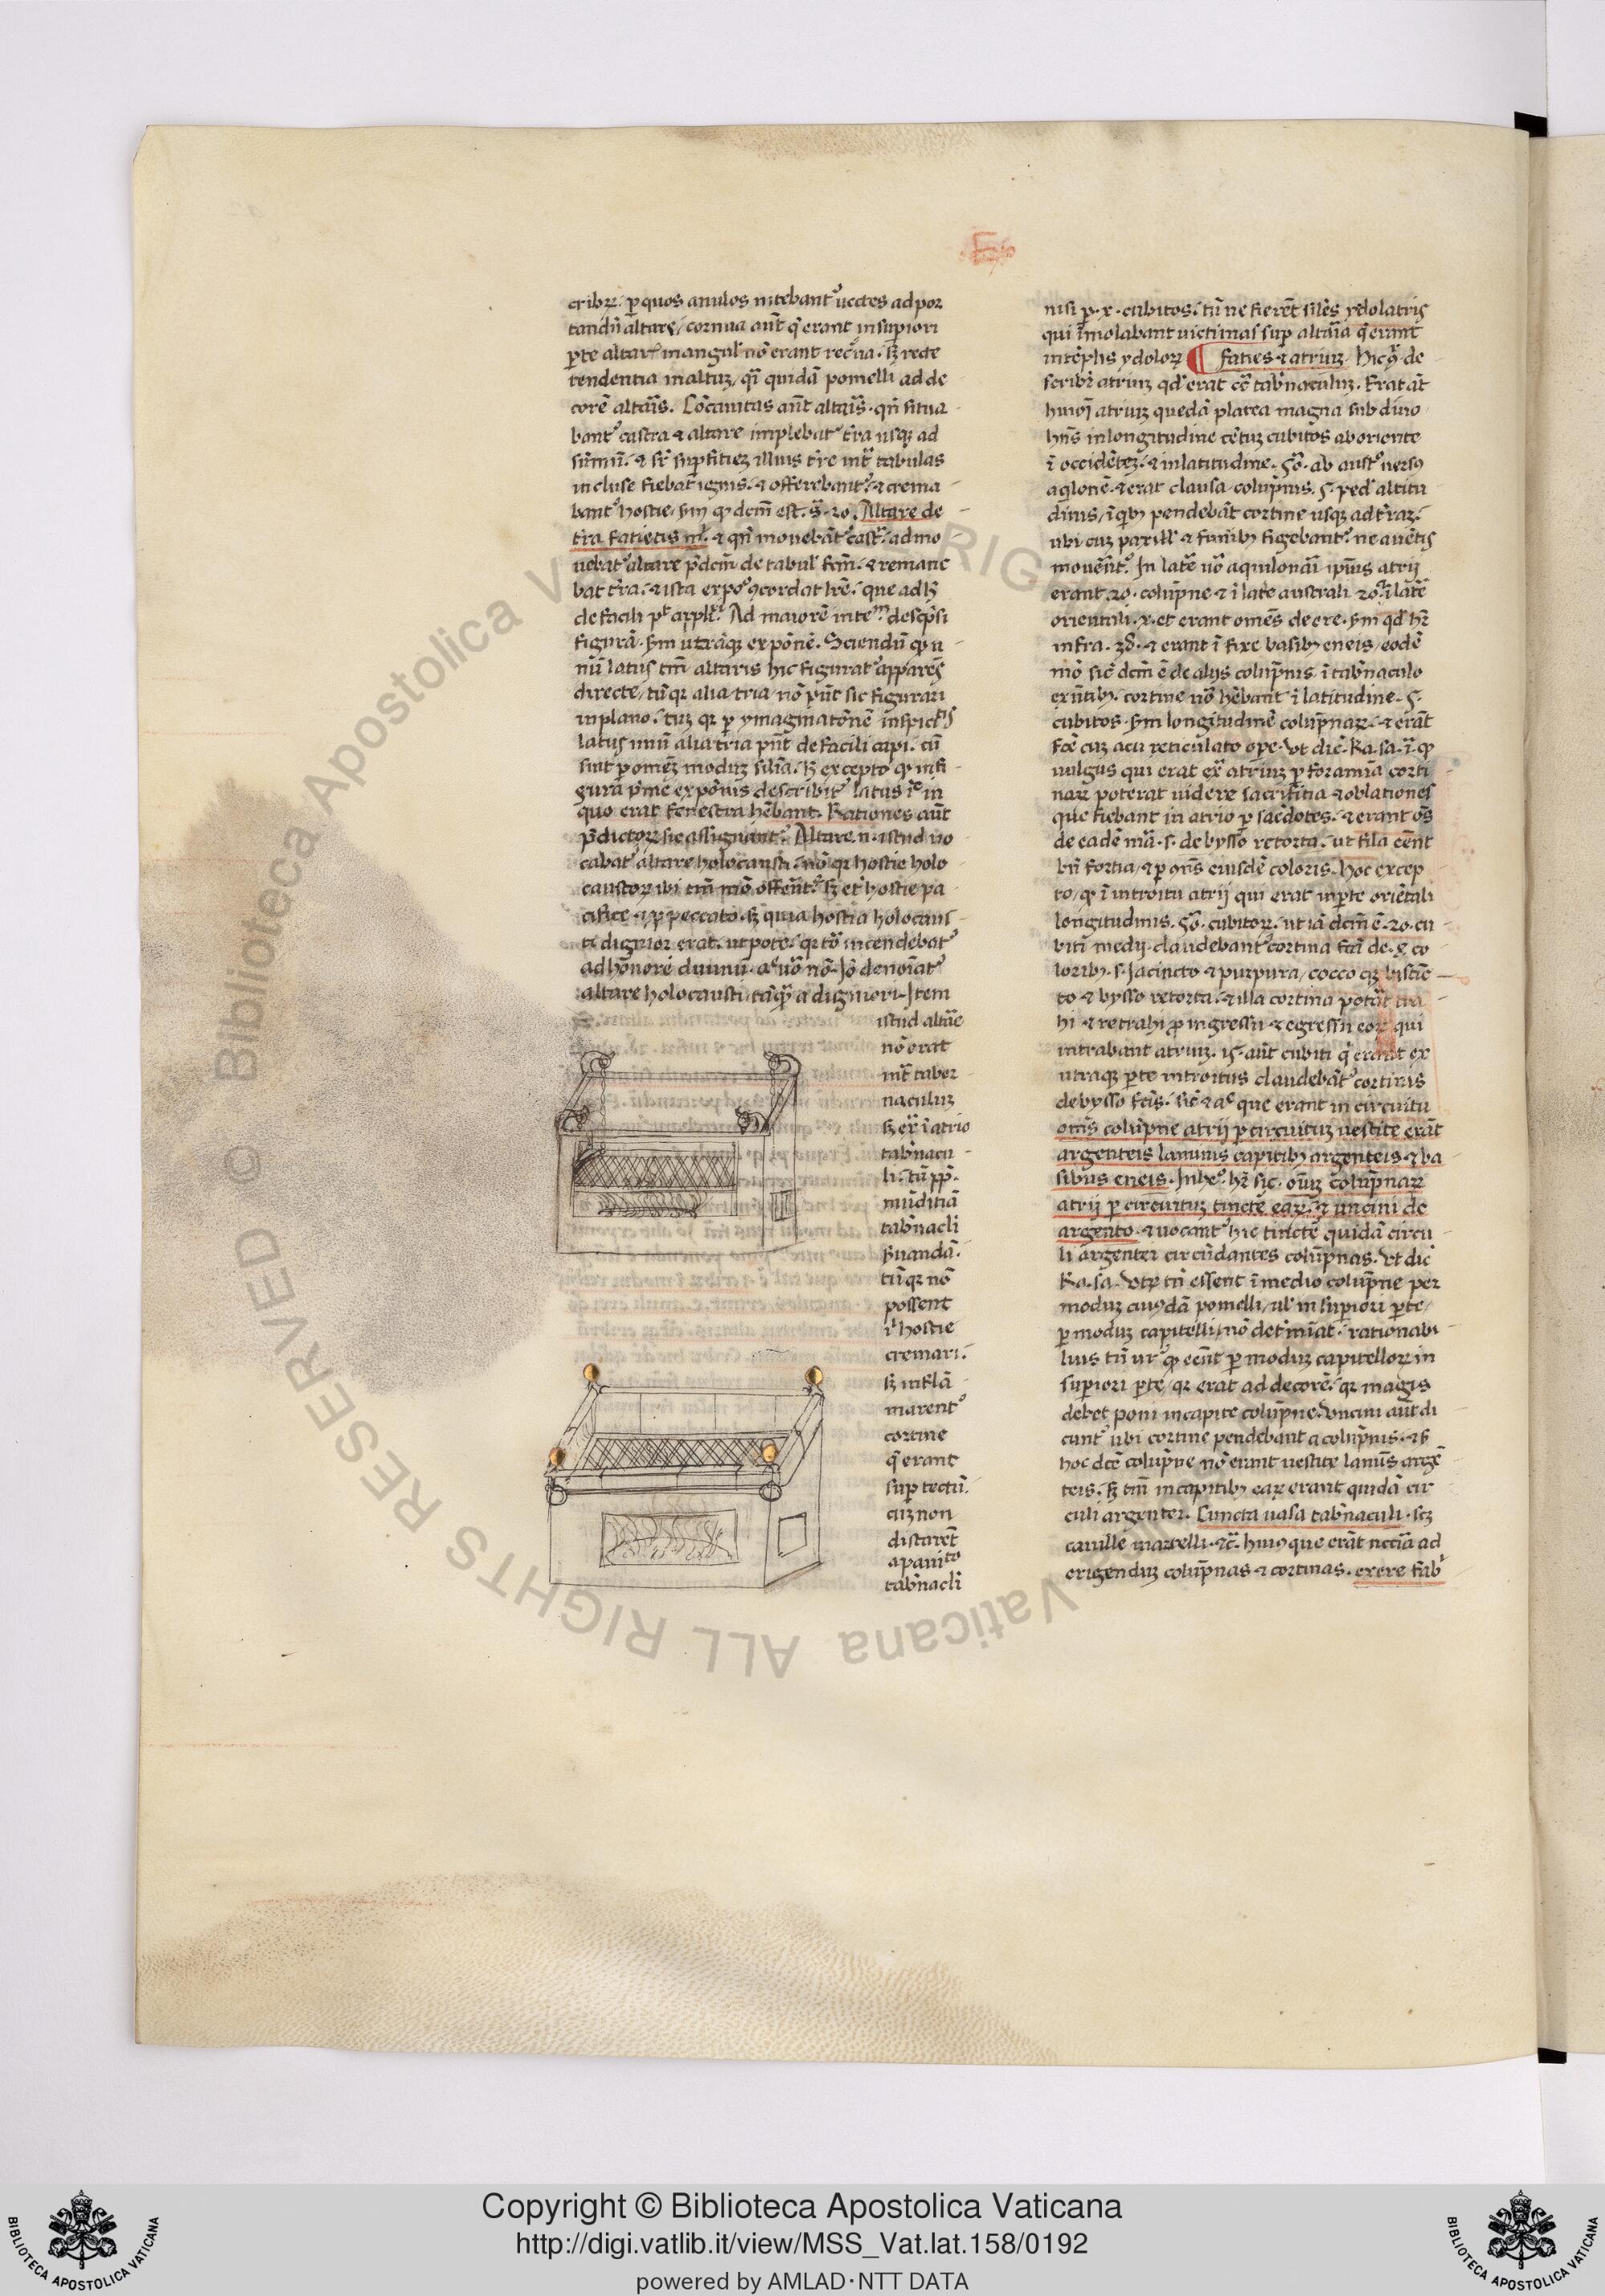 Ex
cribrū. p quos anulos mtebant᷑ uectes ad por
tandū altare, cornua aūt q̄ erant in supiori
pte altar᷑ in angul᷑ nō erant recūa. sz recte
tendentia in altuz, q̄i quidā pomelli ad de
corē altaīs. Cōcauitas aūt altaīs. qn̄ situa
bant᷑ castra ⁊ altare implebat᷑ tr̄a usqz ad
sūmū. ⁊ sr̄ supfitiez illius tr̄e int᷑ tabulas
incluse fiebat ignis. ⁊ offerebant᷑. ⁊ crema
bant᷑ hostie, sm̄ qp dcm̄ est. s̄. 20. Altare de
tr̄a fatietis m᷑. ⁊ qn̄ mouebāt᷑ cast᷑. admo
uebat᷑ altare pdcm̄ de tabul᷑ fcm̄. ⁊ remane
bat tr̄a. ⁊ ista expō ɔcordat lr̄e. que ad hͨ
de facili pt᷑ applicͬ. Ad maiorē inteᵐ descpsi
figurā. sm̄ utrāqz expōnē. Sciendū qp u
nū latus tm̄ altaris hic figurat᷑ apparēs
directe, tū qz alia tria nō pn̄t sic figurari
in plano. tuz qz p ymaginatōnē inspictͥs
latus unū alia tria pn̄t de facili capi. cū
sint p omēz moduz silīa. sz excepto qp in fi
gura pme expōnis describit᷑ latus ī in
quo erat fenestra hēbant. Rationes aūt
pdictoꝝ sic assignant᷑. Altare .n. istud uo
cabat᷑ altare holocausti. nō qz hostie holo
caustoꝝ ibi tm̄ mō offent᷑. sz et hostie pa
cifice. ⁊ p peccato. sz quia hostia holocaus
ti dignior erat. utpote. qz tō incendebat᷑
ad hōnorē diuinū. aͤ uō nō. Jō denoīat᷑
altare holocausti, tāqȝ a digniori. Item
istud altāe
nō erat
int᷑ taber
naculuz
sz ex᷑ ī atrio
tabnacu
li. tū pp.
mūditiā
tabnacli
suandā.
tū qz nō
possent
ī hostie
cremari.
sz inflā
marent᷑
cortine
q̄ erant
sup tectū.
cuz non
distarēt
a pauiᵗᵒ
tabnacli
nisi p .x. cubitos. tū ne fierēt silēs ydolatris
qui īmolabant uictimas sup altāia q̄ erant
in tēplis ydoloꝝ ¶ Faties ⁊ atriuz. Hic ɔ᷑ de
scribit᷑ atriuz qd᷑ erat cē tabnaculuz. Erat āt
huiōi atriuz quedā platea magna sub diuo
hn̄s in longitudine cētuz cubitos ab oriente
ī occidētez. ⁊ in latitudine .50. ab aust᷑ uersꝰ
aqlonē. ⁊ erat clausa colupnis .5. ped᷑ altitu
dinis, ī qbꝫ pendebāt cortine usqz ad trāz.
ubi cuz paxill᷑ ⁊ funibꝫ figebant᷑. ne a uētis
mouent᷑. In late uō aquilonāi ipīus atrij
erant .20. colupne ⁊ ī late australi .20. ī late
orientali .x. et erant omēs de ere. sm̄ qd᷑ hr̄
infra .38. ⁊ erant īfixe basibꝫ eneis, eodē
mō sic᷑ dcm̄ ē de alijs colupnis. ī tabnaculo
exn̄tibꝫ. cortine uō hēbant ī latitudine .5.
cubitos. sm̄ longitudinē colupnaꝝ. ⁊ erāt
fcē cuz acu reticulato ope. Vt dic᷑ Ra. sa. ī qp
uulgus qui erat ex᷑ atriuz p foramīa corti
naꝝ poterat uidere sacrifitia ⁊ oblationes
que fiebant in atrio p sacdotes. ⁊ erant os̄
de eadē mā .s. de bysso retorta. ut fila eēnt
bn̄ fortia, ⁊ p oīs eiusdē coloris. Hoc excep
to, qp ī introitu atrij qui erat in pte oriētali
longitudinis .50. cubitoꝝ. ut iā dcm̄ ē .20. cu
biti medij claudebant᷑ cortina fcā de .4. co
loribꝫ .s. Jacincto ⁊ purpura, cocco qz bistīc
to ⁊ bysso retorta. ⁊ illa cortina potāt tra
hi ⁊ retrahi p ingressu ⁊ egressu eoꝝ qui
intrabant atriuz. 15. aūt cubiti q̄ erant ex
utraqz pte introitus claudebāt᷑ cortinis
de bysso fcīs. sic᷑ ⁊ aͤ que erant in circuitu
oīns colupne atrij p circuituz uestite erāt
argenteis laminis capitibꝫ argenteis. ⁊ ba
sibus eneis. In heͦ. hr̄ sic. oīuz colupnaꝝ
atrij p circuituz tincte eaꝝ. ⁊ uncini de
argento. ⁊ uocant᷑ hic tincte quidā circu
li argentei circūdantes colupnas. Vt dic᷑
Ra. sa. Utꝝ tn̄ essent ī medio colupne per
moduz cuiusdā pomelli, ul᷑ in supiori pte,
p moduz capitelli, nō det᷑miat. rationabi
lius tn̄ ur᷑ qp eēnt p moduz capitelloꝝ in
supiori pte, qz erat ad decorē. qz magis
debet poni in capite colupne. Vncini aūt di
cunt᷑ ubi cortine pendebant a colupnis. ⁊ sͫ
hoc dcē colupne nō erant uestite lamis argē
teis. sz tm̄ in capitibꝫ eaꝝ erant quidā cir
culi argentei. Cuncta uasa tabnaculi. scz
cauille martelli ⁊c. huiꝰ que erāt nccīa ad
erigenduz colupnas ⁊ cortinas. ex ere fab᷑
© Biblioteca Apostolica Vaticana ALL RIGHTS RESERVED
Copyright © Biblioteca Apostolica Vaticana
http://digi.vatlib.it/view/MSS_Vat.lat.158/0192
powered by AMLAD·NTT DATA
BIBLIOTECA APOSTOLICA VATICANA
BIBLIOTECA APOSTOLICA VATICANA